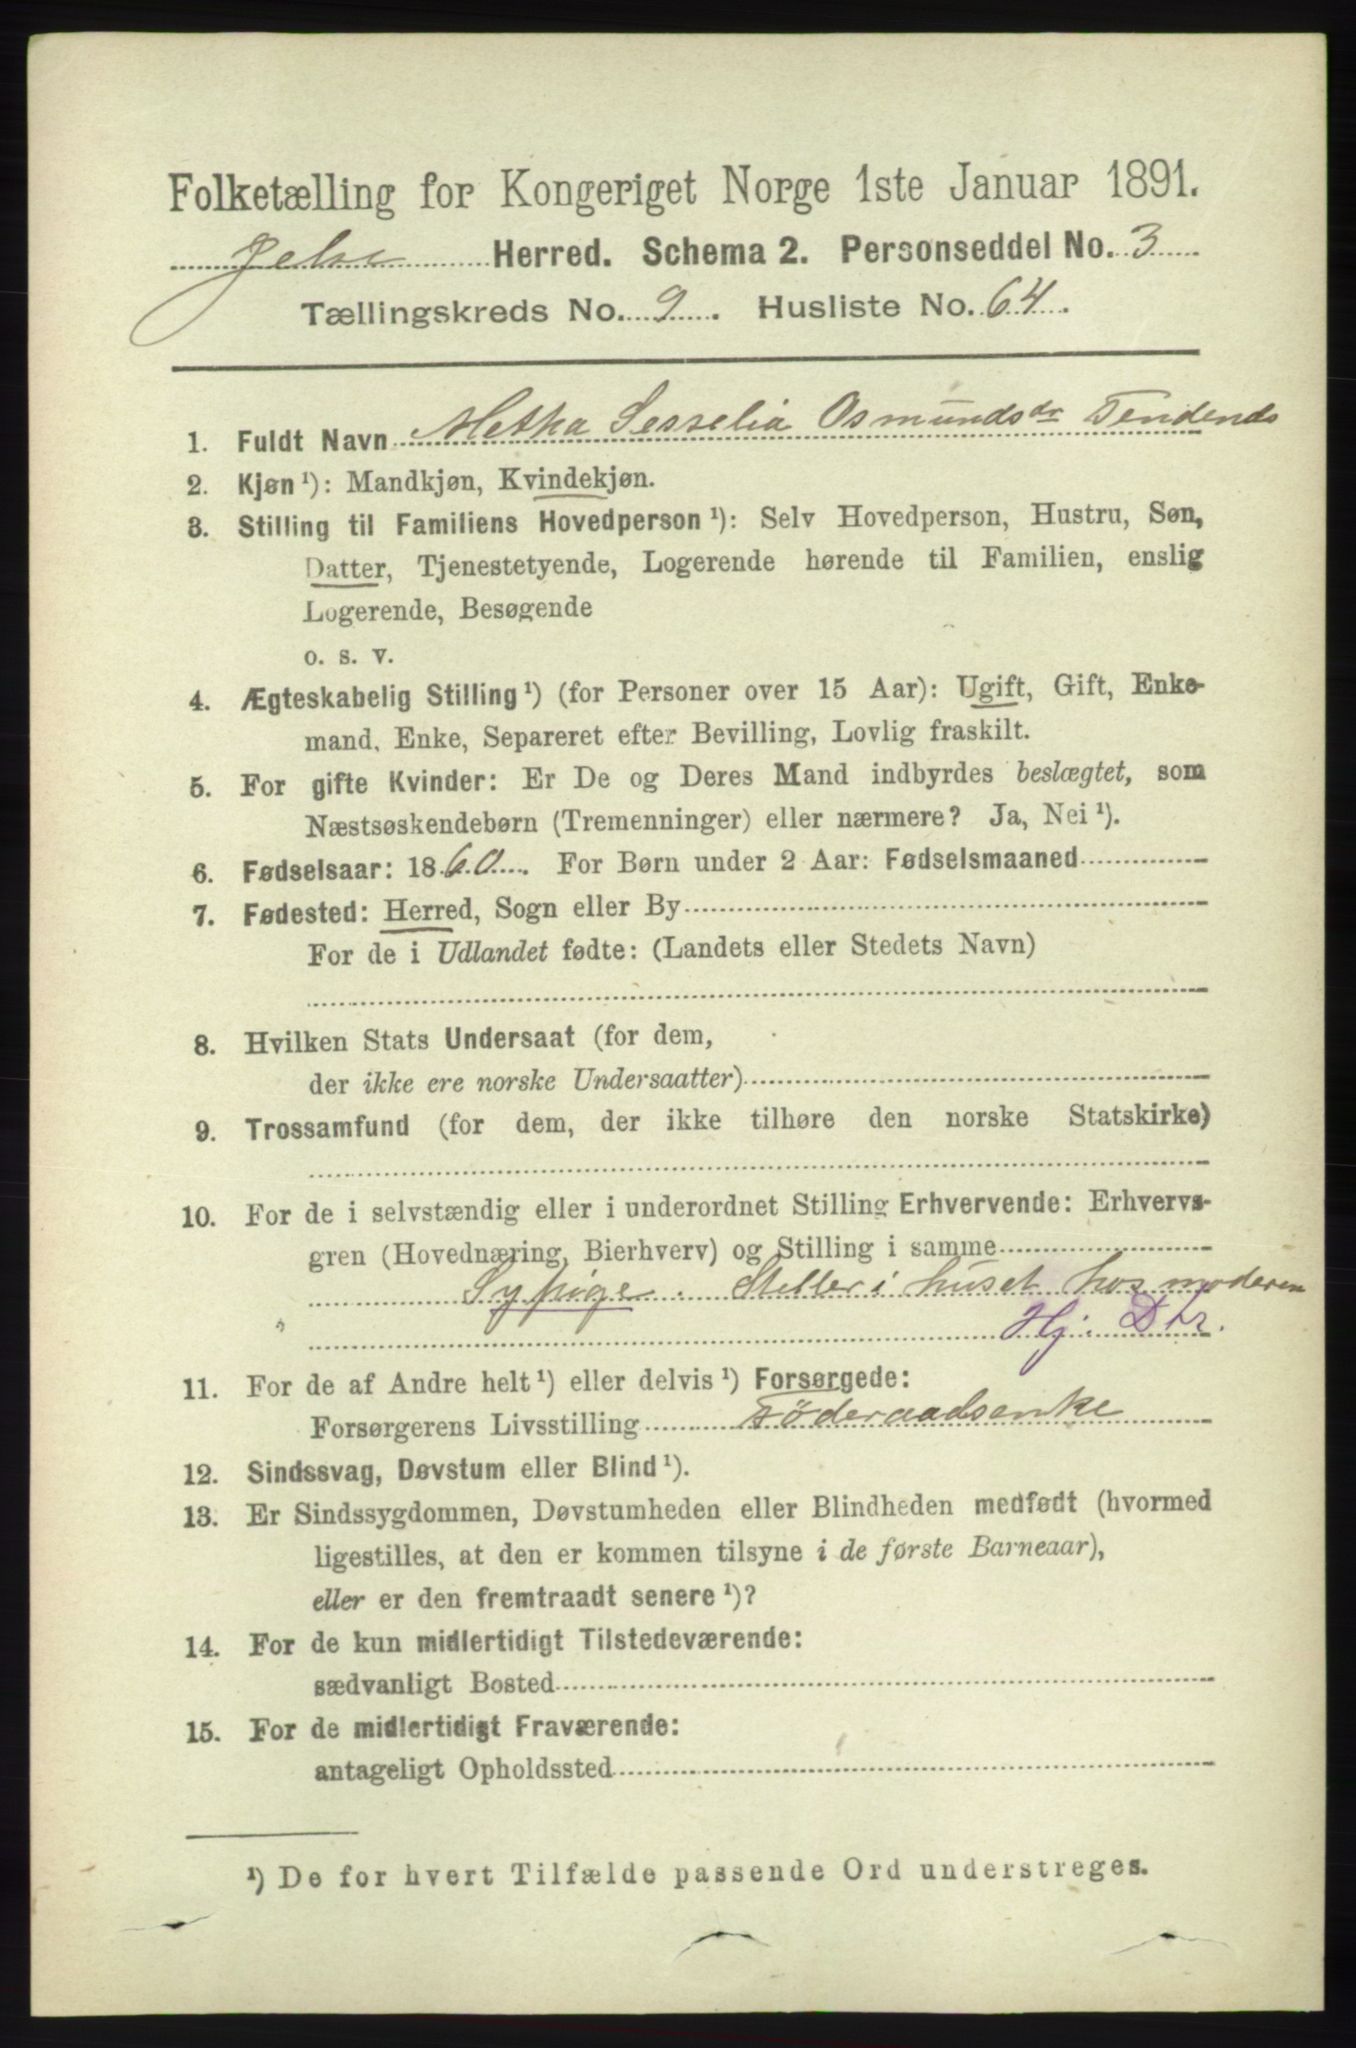 Folketælling for Kongeriget Norge 1ste Januar 1891.
Jelse Herred. Schema 2. Personseddel No. 3
Tællingskreds No. 9. Husliste No. 64.
1. Fuldt Navn Metha Sesselia Osmundsdr Tendends
2. Kjøn ¹): Mandkjøn, Kvindekjøn.
3. Stilling til Familiens Hovedperson ¹): Selv Hovedperson, Hustru, Søn,
Datter, Tjenestetyende, Logerende hørende til Familien, enslig
Logerende, Besøgende
o. s. v.
4. Ægteskabelig Stilling ¹) (for Personer over 15 Aar): Ugift, Gift, Enke-
mand, Enke, Separeret efter Bevilling, Lovlig fraskilt.
5. For gifte Kvinder: Er De og Deres Mand indbyrdes beslægtet, som
Næstsøskendebørn (Tremenninger) eller nærmere? Ja, Nei ¹).
6. Fødselsaar: 1860. For Børn under 2 Aar: Fødselsmaaned
7. Fødested: Herred, Sogn eller By
For de i Udlandet fødte: (Landets eller Stedets Navn)
8. Hvilken Stats Undersaat (for dem,
der ikke ere norske Undersaatter)
9. Trossamfund (for dem, der ikke tilhøre den norske Statskirke)
10. For de i selvstændig eller i underordnet Stilling Erhvervende: Erhvervs-
gren (Hovednæring, Bierhverv) og Stilling i samme
Sypige. Steller i huset hos moderen
Hj. Dtr.
11. For de af Andre helt ¹) eller delvis ¹) Forsørgede:
Forsørgerens Livsstilling Föderaadsenke
12. Sindssvag, Døvstum eller Blind ¹).
13. Er Sindssygdommen, Døvstumheden eller Blindheden medfødt (hvormed
ligestilles, at den er kommen tilsyne i de første Barneaar),
eller er den fremtraadt senere ¹)?
14. For de kun midlertidigt Tilstedeværende:
sædvanligt Bosted
15. For de midlertidigt Fraværende:
antageligt Opholdssted
¹) De for hvert Tilfælde passende Ord understreges.